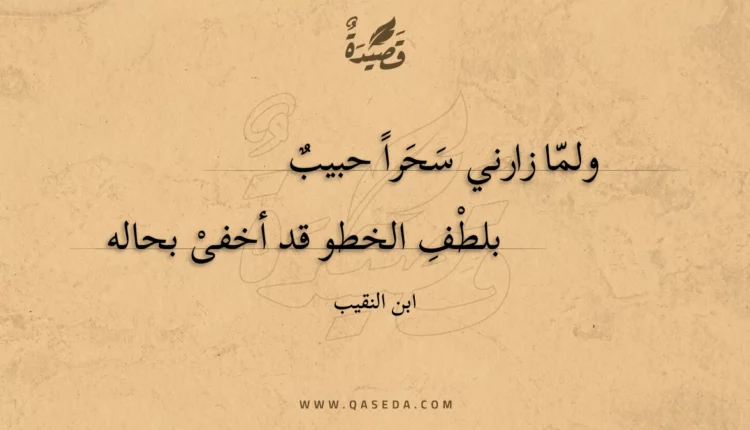 قَصِيْدَةٌ
ولمّا زارني سَحَراً حبيبٌ
بلطْفِ الخطو قد أخفىْ بحاله
ابن النقيب
WWW.QASEDA.COM